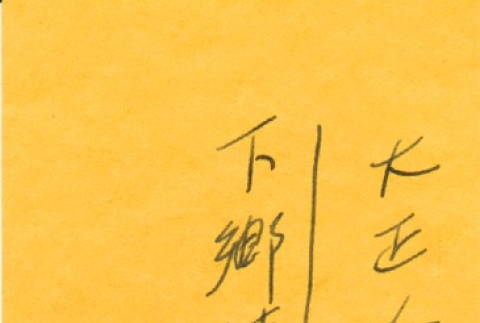 大正
下郷